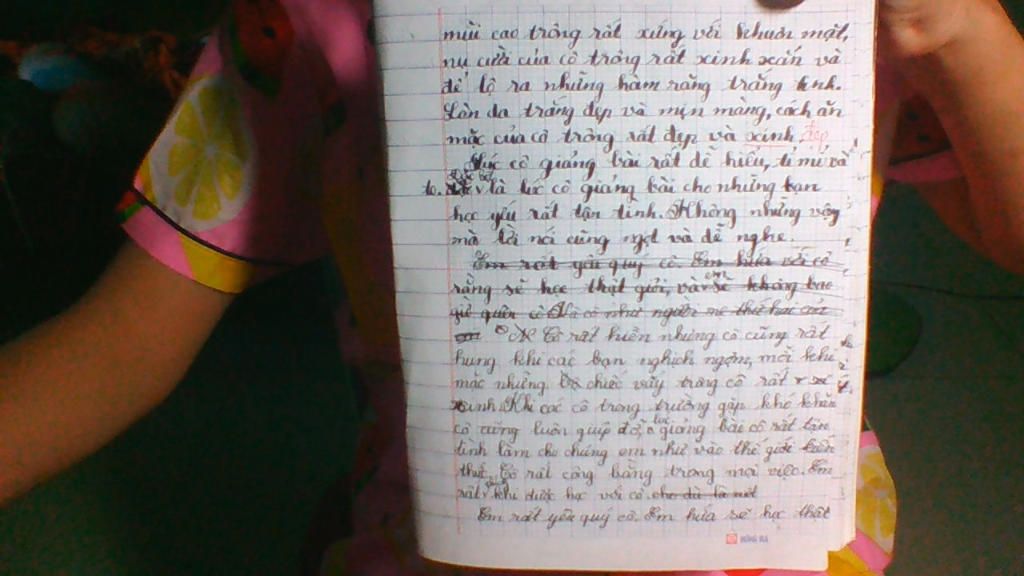 mũi cao trông rất xứng với khuôn mặt,
nụ cười của cô trông rất xinh xắn và
để lộ ra những hàm răng trắng tinh.
Làn da trắng đẹp và mịn màng, cách ăn
mặc của cô trông rất đẹp và xinh đẹp
lúc cô giảng bài rất dễ hiểu, tỉ mỉ và
là lúc cô giảng bài cho những bạn
học yếu rất tận tình. Không những vậy
mà lời nói cũng ngọt và dễ nghe.
Em rất yêu quý cô. Em hứa với cô
rằng sẽ học thật giỏi, và em sẽ không bao
giờ quên cô Và cô như người mẹ thứ hai của
em Cô rất hiền nhưng cô cũng rất
hung khi các bạn nghịch ngợm, mỗi khi
mặc những chiếc váy trông cô rất
xinh. Khi các cô trong trường gặp khó khăn
cô cũng luôn giúp đỡ, lúc giảng bài cô rất tận
tình làm cho chúng em như vào thế giới
thật. Cô rất công bằng trong mọi việc. Em
rất khi được học với cô. cho dù là một
Em rất yêu quý cô. Em hứa sẽ học thật
HỒNG HÀ